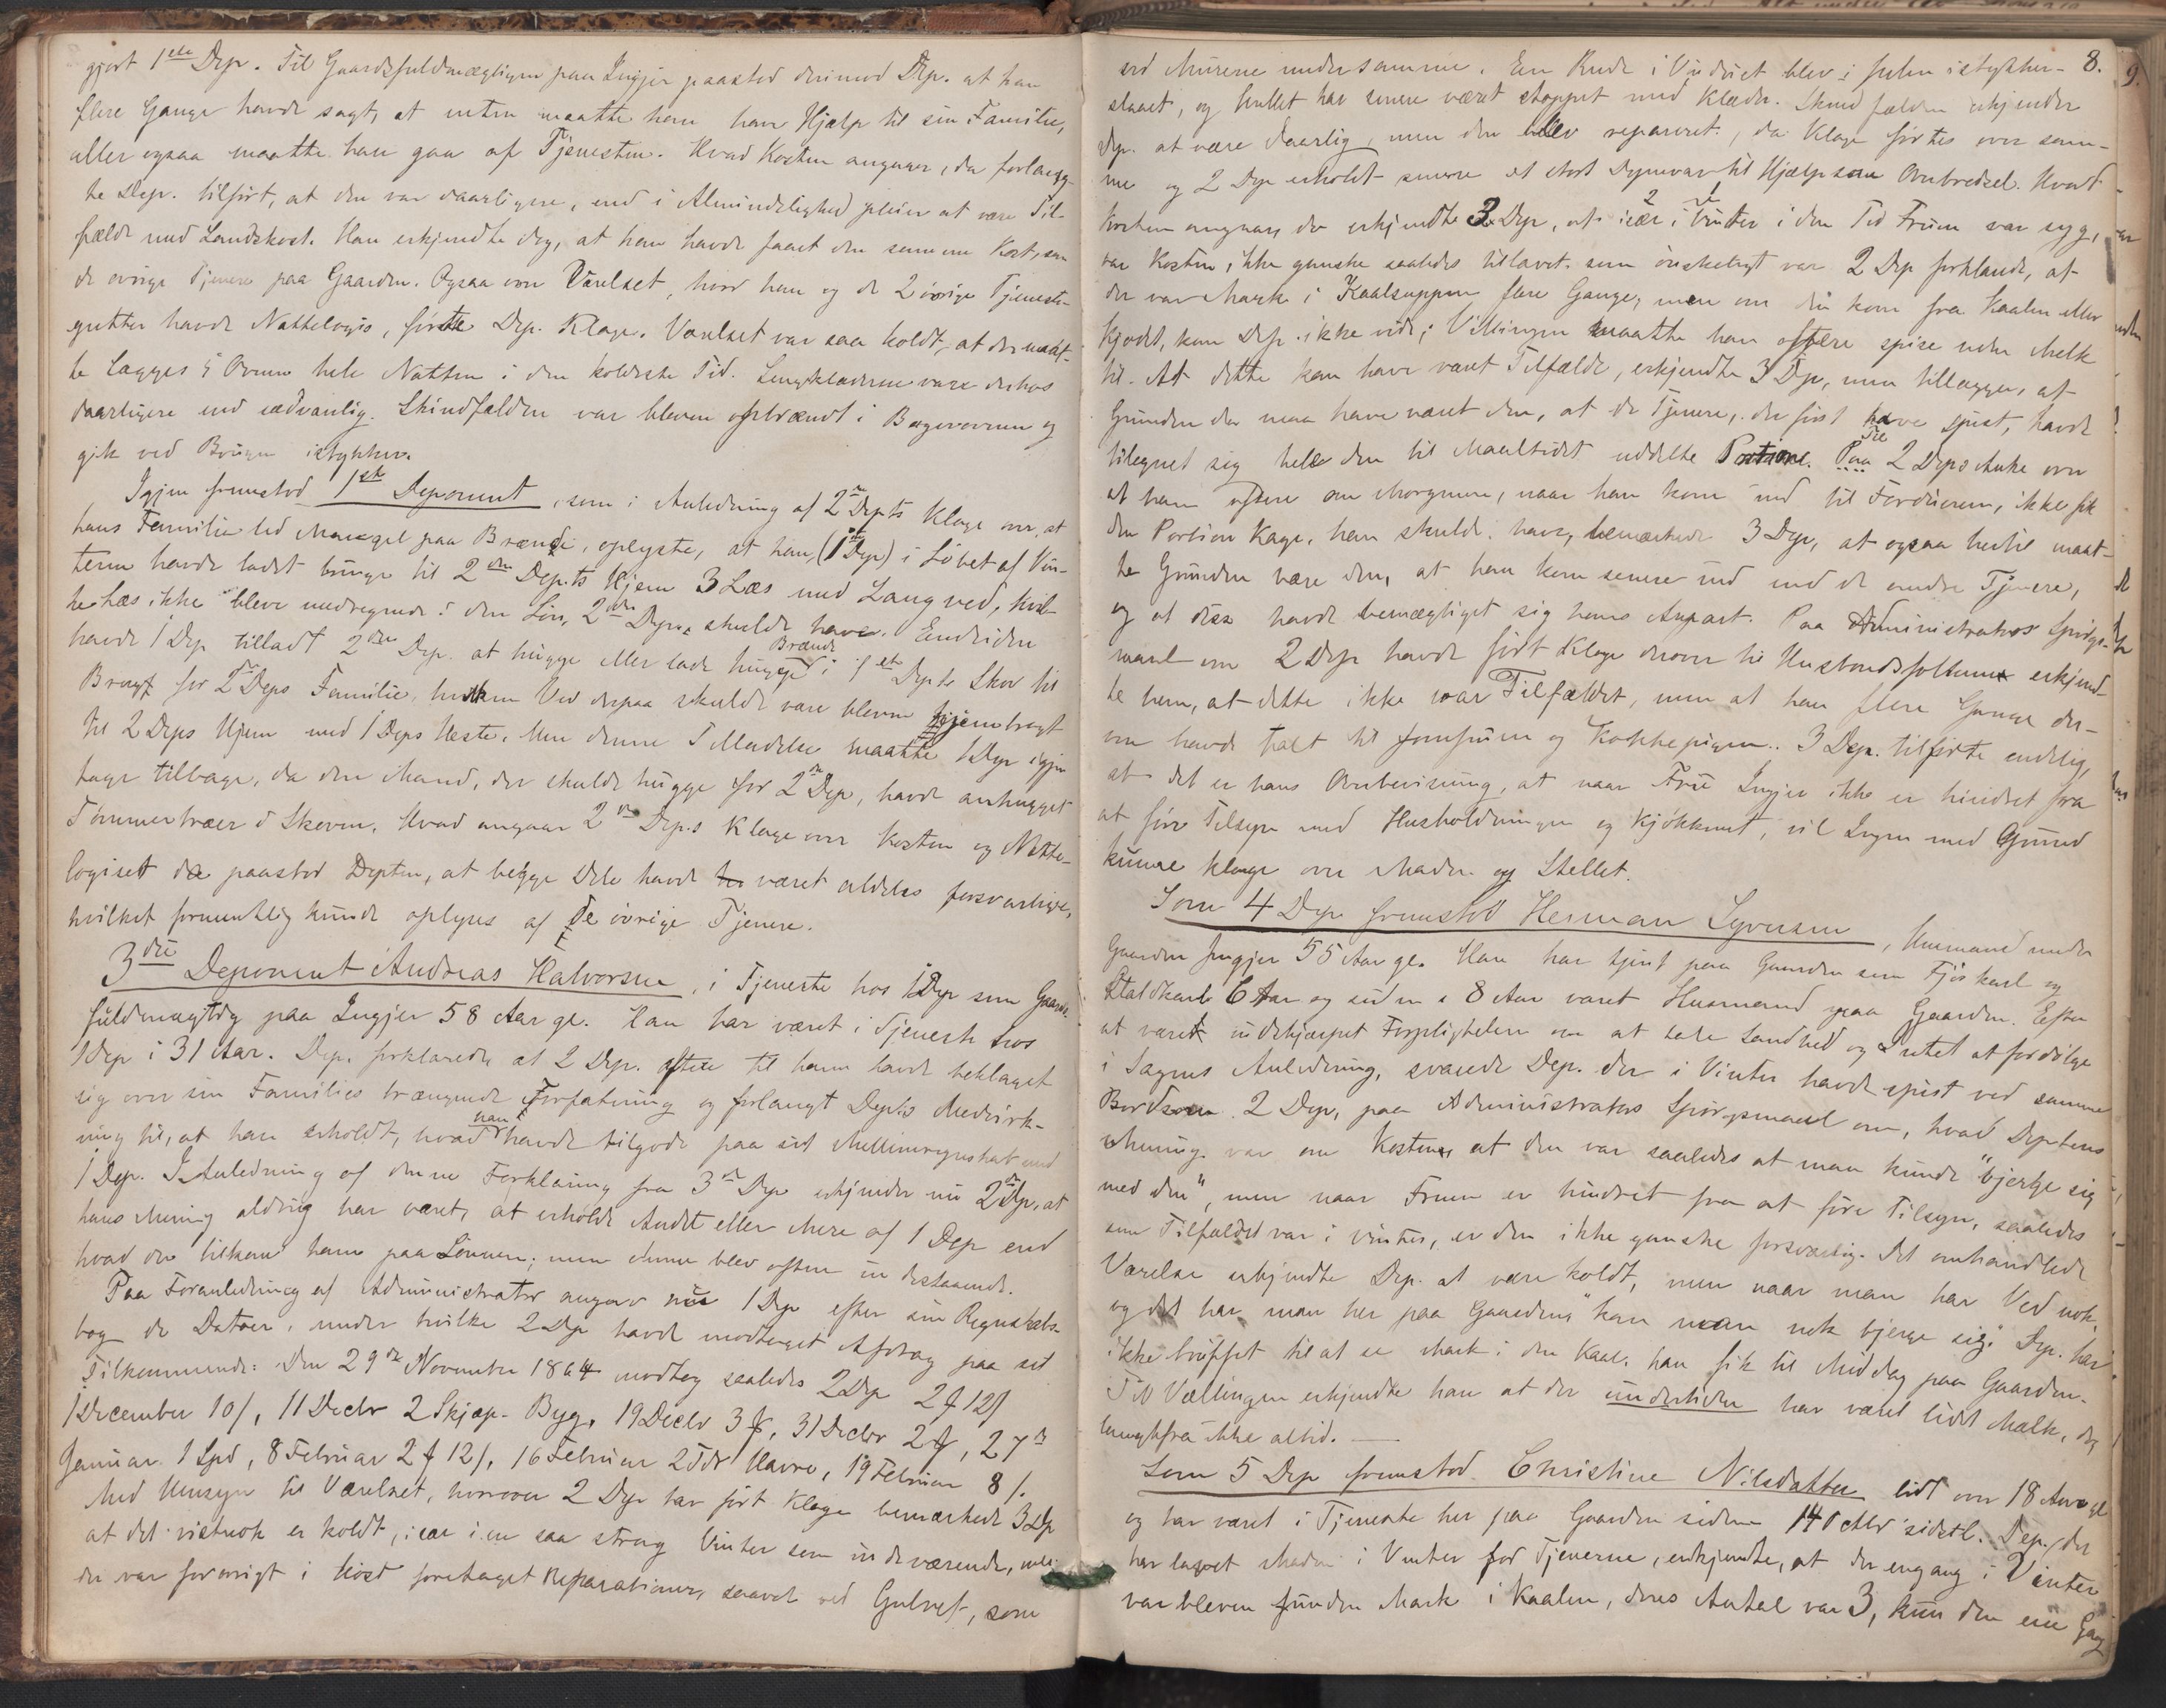 gjort 1ste Dep. Til Gaardsfuldmægtigen paa Ingjer paastod derimod Dep. at han
flere Gange havde sagt, at enten maatte han have Hjælp til sin Familie,
eller ogsaa maatte han gaa af Tjenesten. Hvad Kosten angaaer, da forlang-
te Dep. tilført, at den var daarligere, end i Almindelighed pleier at være Til-
fælde med Landskost. Han erkjendte dog, at han havde faaet den samme Kost, som
de øvrige Tjenere paa Gaarden. Ogsaa over Værelset, hvor han og de 2 øvrige Tjeneste-
gutter havde Nattelogis, førte Dep. Klage. Værelset var saa koldt, at der maat-
te lægges i Ovnen hele Natten i den koldeste Tid. Sengklæderne vare derhos
daarligere end sædvanlig. Skindfælden var bleven opbrændt i Bagerovnen og
gik ved Brugen istykker.
Igjen fremstod 1ste Deponent, som i Anledning af 2den Depts Klage over, at
hans Familie led Mangel paa Brænde, oplyste, at han (1ste Dep) i Løbet af Vin-
teren havde ladet bringe til 2den Dep.ts Hjem 3 Læs med Langved, hvil-
ke Læs ikke bleve medregnede i den Løn, 2den Dep. skulde have. Endvidere
havde 1 Dep tilladt 2den Dep. at hugge eller lade hugge Brænde i 1ste Depts Skov til
Brug for 2den Deps Familie, hvilken Ved derpaa skulde være bleven hjembragt
til 2 Deps Hjem med 1 Deps Heste. Men denne Tilladelse maatte 1 Dep igjen
tage tilbage, da den Mand, der skulde hugge for 2den Dep, havde anhugget
Tømmertræer i Skoven. Hvad angaar 2den Dep.s Klage over Kosten og Natte-
logiset da paastod Depten, at begge Dele havde været aldeles forsvarlige,
hvilket formentlig kunde oplyses af de øvrige Tjenere.
3die Deponent Andreas Halvorsen, i Tjeneste hos 1 Dep som Gaards-
fuldmægtig paa Ingjer 58 Aar gl. Han har været i Tjeneste hos
1 Dep i 31 Aar. Dep. forklarede, at 2 Dep. oftere til ham havde beklaget
sig over sin Families trængende Forfatning og forlangt Dep.ts Medvirk-
ning til, at han erholdt, hvad han havde tilgode paa sit Mellemregnskab med
1 Dep. I Anledning af denne Forklaring fra 3die Dep erkjender nu 2den Dep, at
hans Mening aldrig har været, at erholde Andet eller Mere af 1 Dep end
hvad der tilkom ham paa Lønnen; men denne blev oftere udestaaende.
Paa Foranledning af Administrator angav nu 1 Dep efter sin Regnskabs-
bog de Datoer, under hvilke 2 Dep havde modtaget Afdrag paa sit
Tilkommende: Den 29de November 1864 modtog saaledes 2 Dep 2 ₰ 12 ſ
1 December 10 ſ, 11 Decbr 2 Skjæp. Byg, 19 Decbr 3 ₰, 31 Decbr 2 ₰, 27de
Januar 1 Spd, 8 Februar 2 ₰ 12 ſ, 16 Februar 2 Tdr Havre, 19 Februar 8 ſ.
Med Hensyn til Værelset, hvorover 2 Dep har ført Klage bemærkede 3 Dep
at det vistnok er koldt, især i en saa streng Vinter som indeværende, men
der var forøvrigt i Høst foretaget Reparationer, saavel ved Gulvet, som
8.
9.
ved Murene under samme. En Rude i Vinduet blev i Julen istykker-
slaaet, og hullet har senere været stoppet med Klæder. Skindfælden erkjender
Dep. at være daarlig, men den blev repareret, da Klage førtes over sam-
me og 2 Dep erholdt senere et stort Dynevar til Hjælp som Ovebredsel. Hvad
Kosten angaar, da erkjendte 3 Dep, at især i Vinter i den Tid Fruen var syg,
var Kosten ikke ganske saaledes tillavet som ønskeligt var. 2 Dep forklarede, at
der var Mark i Kaalsuppen flere Gange, men om den kom fra Kaalen eller
Kjødet, kan Dep. ikke vide; Vællingen maatte han oftere spise uden Melk
til. At dette kan have været Tilfælde, erkjendte 3 Dep, men tillægger, at
Grunden der maa have været den, at de Tjenere, der først have spist, havde
tilegnet sig hele den til Maaltidet uddelte Portion. Paa 2 Deps Anke over
at han oftere om Morgenen, naar han kom ind til Forduren, ikke fik
den Portion Kage, han skulde have, bemærkede 3 Dep, at ogsaa hertil maat-
te Grunden være den, at han kom senere ind end de andre Tjenere,
og at disse havde bemægtiget sig hans Anpart. Paa Administrators Spørgs-
maal om 2 Dep havde ført Klage derover til Husbondsfolkene erkjend-
te han, at dette ikke var Tilfældet, men at han flere Gange der-
om havde talt til Jomfruen og Kokkepigen. 3 Dep. tilførte endelig,
at det er hans Overbevisning, at naar Fru Ingjer ikke er hindret fra
at føre Tilsyn med Husholdningen og Kjøkkenet, vil Ingen med Grund
kunne klage over Maden og Stellet.
Som 4 Dep fremstod Herman Syversen, Husmand under
Gaarden Ingjer 55 Aar gl. Han har tjent paa Gaarden som Fjøskarl og
Staldkarl 6 Aar og siden i 8 Aar været Husmand paa Gaarden. Efter
at været indskjærpet Forpligtelsen om at tale Sandhed og Intet at fordølge
i Sagens Anledning, svarede Dep. der i Vinter havde spist ved samme
Bord som 2 Dep, paa Administrators Spørgsmaal om, hvad Deptens
Mening var om Kosten, at den var saaledes at man kunde "bjerge sig
med den", men naar Fruen er hindret fra at føre Tilsyn, saaledes
som Tilfældet var i Vinter, er den ikke ganske forsvarlig. Det omhandlede
Værelse erkjendte Dep. at være koldt, men naar man har Ved nok,
og det har man her paa Gaarden, "kan man nok bjerge sig". Dep. har
ikke truffet til at se Mark i den Kaal, han fik til Middag paa Gaarden.
Til Vællingen erkjendte han at der undertiden har været lidt Mælk, dog
langtfra ikke altid.
Som 5 Dep fremstod Christine Nilsdatter lidt over 18 Aar gl
og har været i Tjeneste her paa Gaarden siden 14 Octbr sidstl. Dep, der
har lavet Maden i Vinter for Tjenerne, erkjendte, at der engang i Vinter
var bleven funden Mark i Kaalen, deres Antal var 3, kun den ene Gang